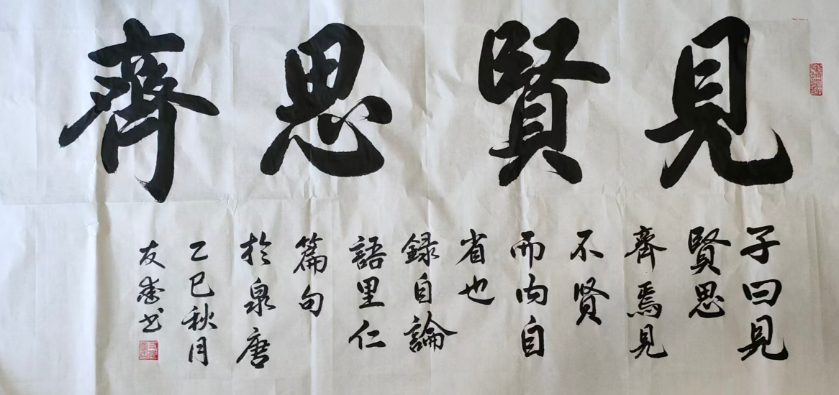 見賢思齊
子曰見
賢思
齊焉見
不賢
而內自
省也
錄自論
語里仁
篇句
於泉唐
乙巳秋月
友書